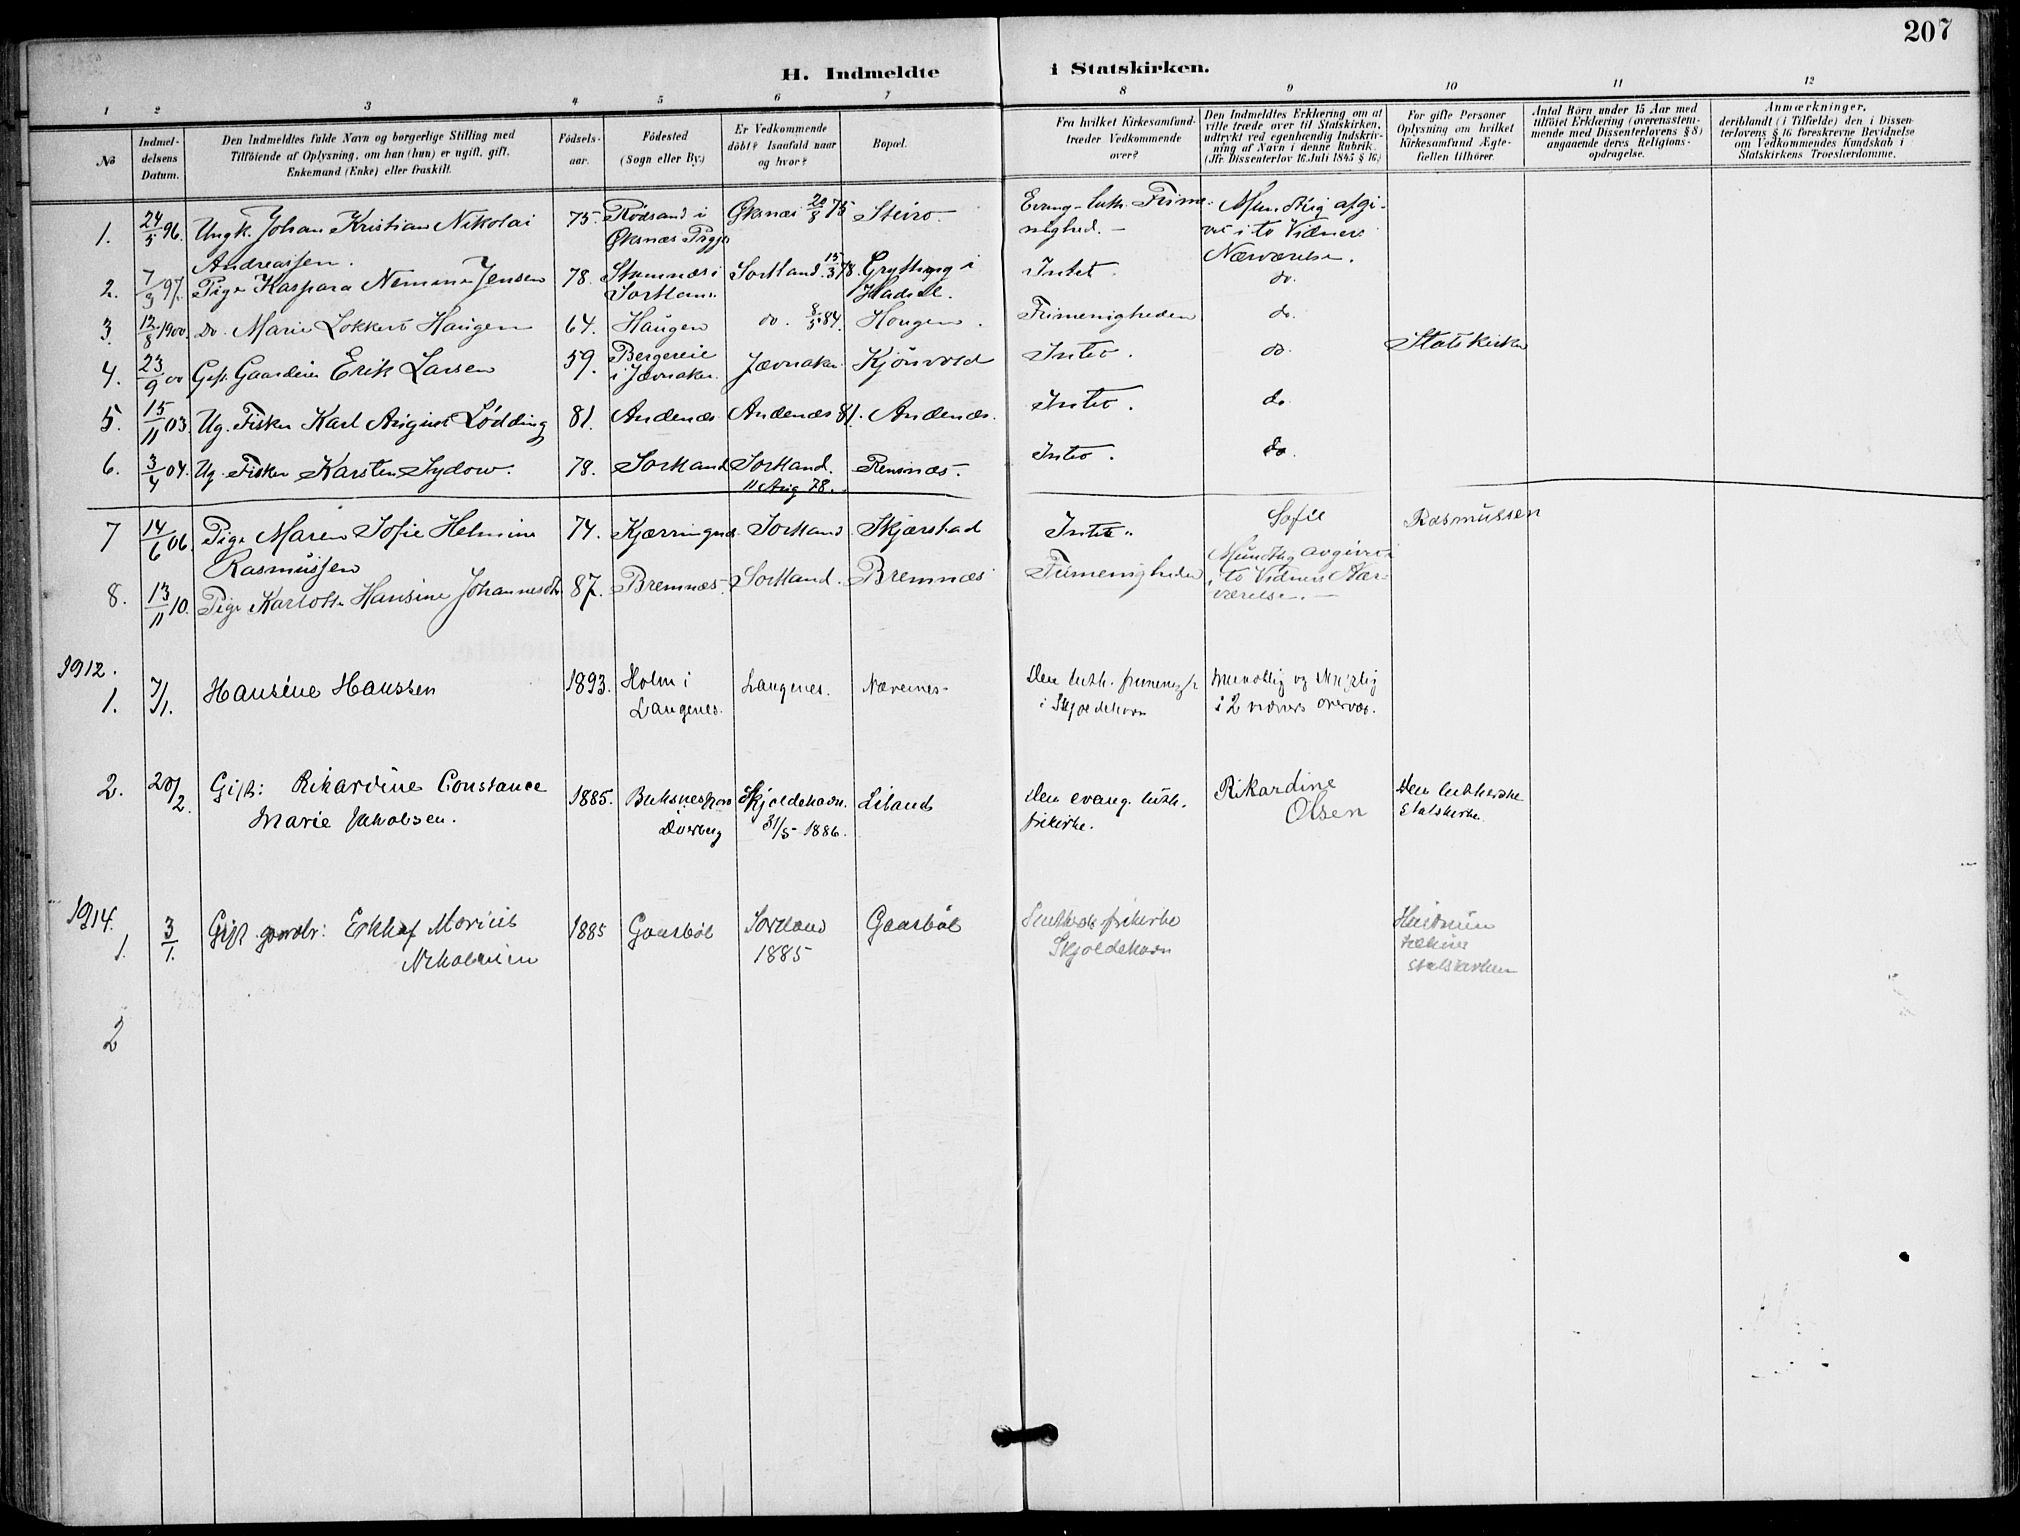 207
H. Indmeldte i Statskirken.
1 2 3 4 5 6 7 8 9 10 11 12
No
Indmeldelsens Datum.
Den Indmeldtes fulde Navn og borgerlige Stilling med
Tilföiende af Oplysning, om han (hun) er ugift, gift,
Enkemand (Enke) eller fraskilt.
Födsels-
aar.
Födested
(Sogn eller By.)
Er Vedkommende
döbt? Isaafald naar
og hvor?
Bopæl.
Fra hvilket Kirkesamfund
træder Vedkommende
over?
Den Indmeldtes Erklæring om at
ville træde over til Statskirken,
udtrykt ved egenhændig Indskriv-
ning af Navn i denne Rubrik.
(Jfr. Dissenterlov 16 Juli 1845 § 16.)
For gifte Personer
Oplysning om hvilket
Kirkesamfund Ægte-
fællen tilhörer.
Antal Börn under 15 Aar med
tilföiet Erklæring (overensstem-
mende med Dissenterlovens § 8)
angaaende deres Religions-
opdragelse.
Anmærkninger,
deriblandt (i Tilfælde) den i Dissen-
terlovens § 16 foreskrevne Bevidnelse
om Vedkommendes Kundskab i
Statskirkens Troeslærdomme.
1. 24/5 96. Ungk. Johan Kristian Nikolai 75. Rödsand i Øksnæs 20/8 75 Steiro. Evang. luth. Frime- Mundtlig afgi-
Andreassen. Øksnæs Prgj. nighed. - vet i to Vidners
Nærværelse.
2. 7/3 97. Pige Kaspara Jensen 78. i Sortland 15/3 78. i Intet. do.
Sortland. Hadsel.
3. 12/8 1900. Do. Marie Lokkert Haugen 64. Haugen do. 84. Haugen. Frimenigheden do.
4. 23/9 00 Gift Gaardeier Erik Larsen 59. Bergereie Jævnaker Kjörsvold Intet. do. Statskirken
i Jævnaker.
5. 15/11 03. Ug. Fisker Karl August Lödding 81. Andenæs Andenæs 81. Andenæs. Intet. do
6. 3/4 04. Ug. Fisker Karsten Sydow. 78. Sortland Sortland. Rensnæs. Intet. do
11 Aug 78.
7 14/6 06. Pige Maren Sofie Helmine 74. Kjærringnes Sortland Skjærstad Intet. Sofie Rasmussen
Rasmussen
8. 13/11 10. Pige Karlotte Hansine Johannesdtr 87. Bremnæs. Sortland. Bremnæs Frimenigheden Mundtlig avgivet
i to Vidners Nær-
værelse. -
1912.
1. 7/1. Hansine Hanssen 1893. Holm i Langenes. Nævernes Den luth. frimenigh. mundtlig og
Langenes. i Skjoldehavn i 2 vidners overvær.
2. 20/2. Gift: Rikardine Constance 1885. Skjoldehavn. Liland Den evang. luth. Rikardine Den lutherske
Marie Jakobsen. Dverberg 31/5 1886. frikirke. Olsen statskirke
1914.
1. 3/1. Gift gaardbr: Moritz 1885 Gaasböl Sortland Gaasböl Luthersk frikirke Hustruen
1885 Skjoldehavn tilhører
statskirken
2